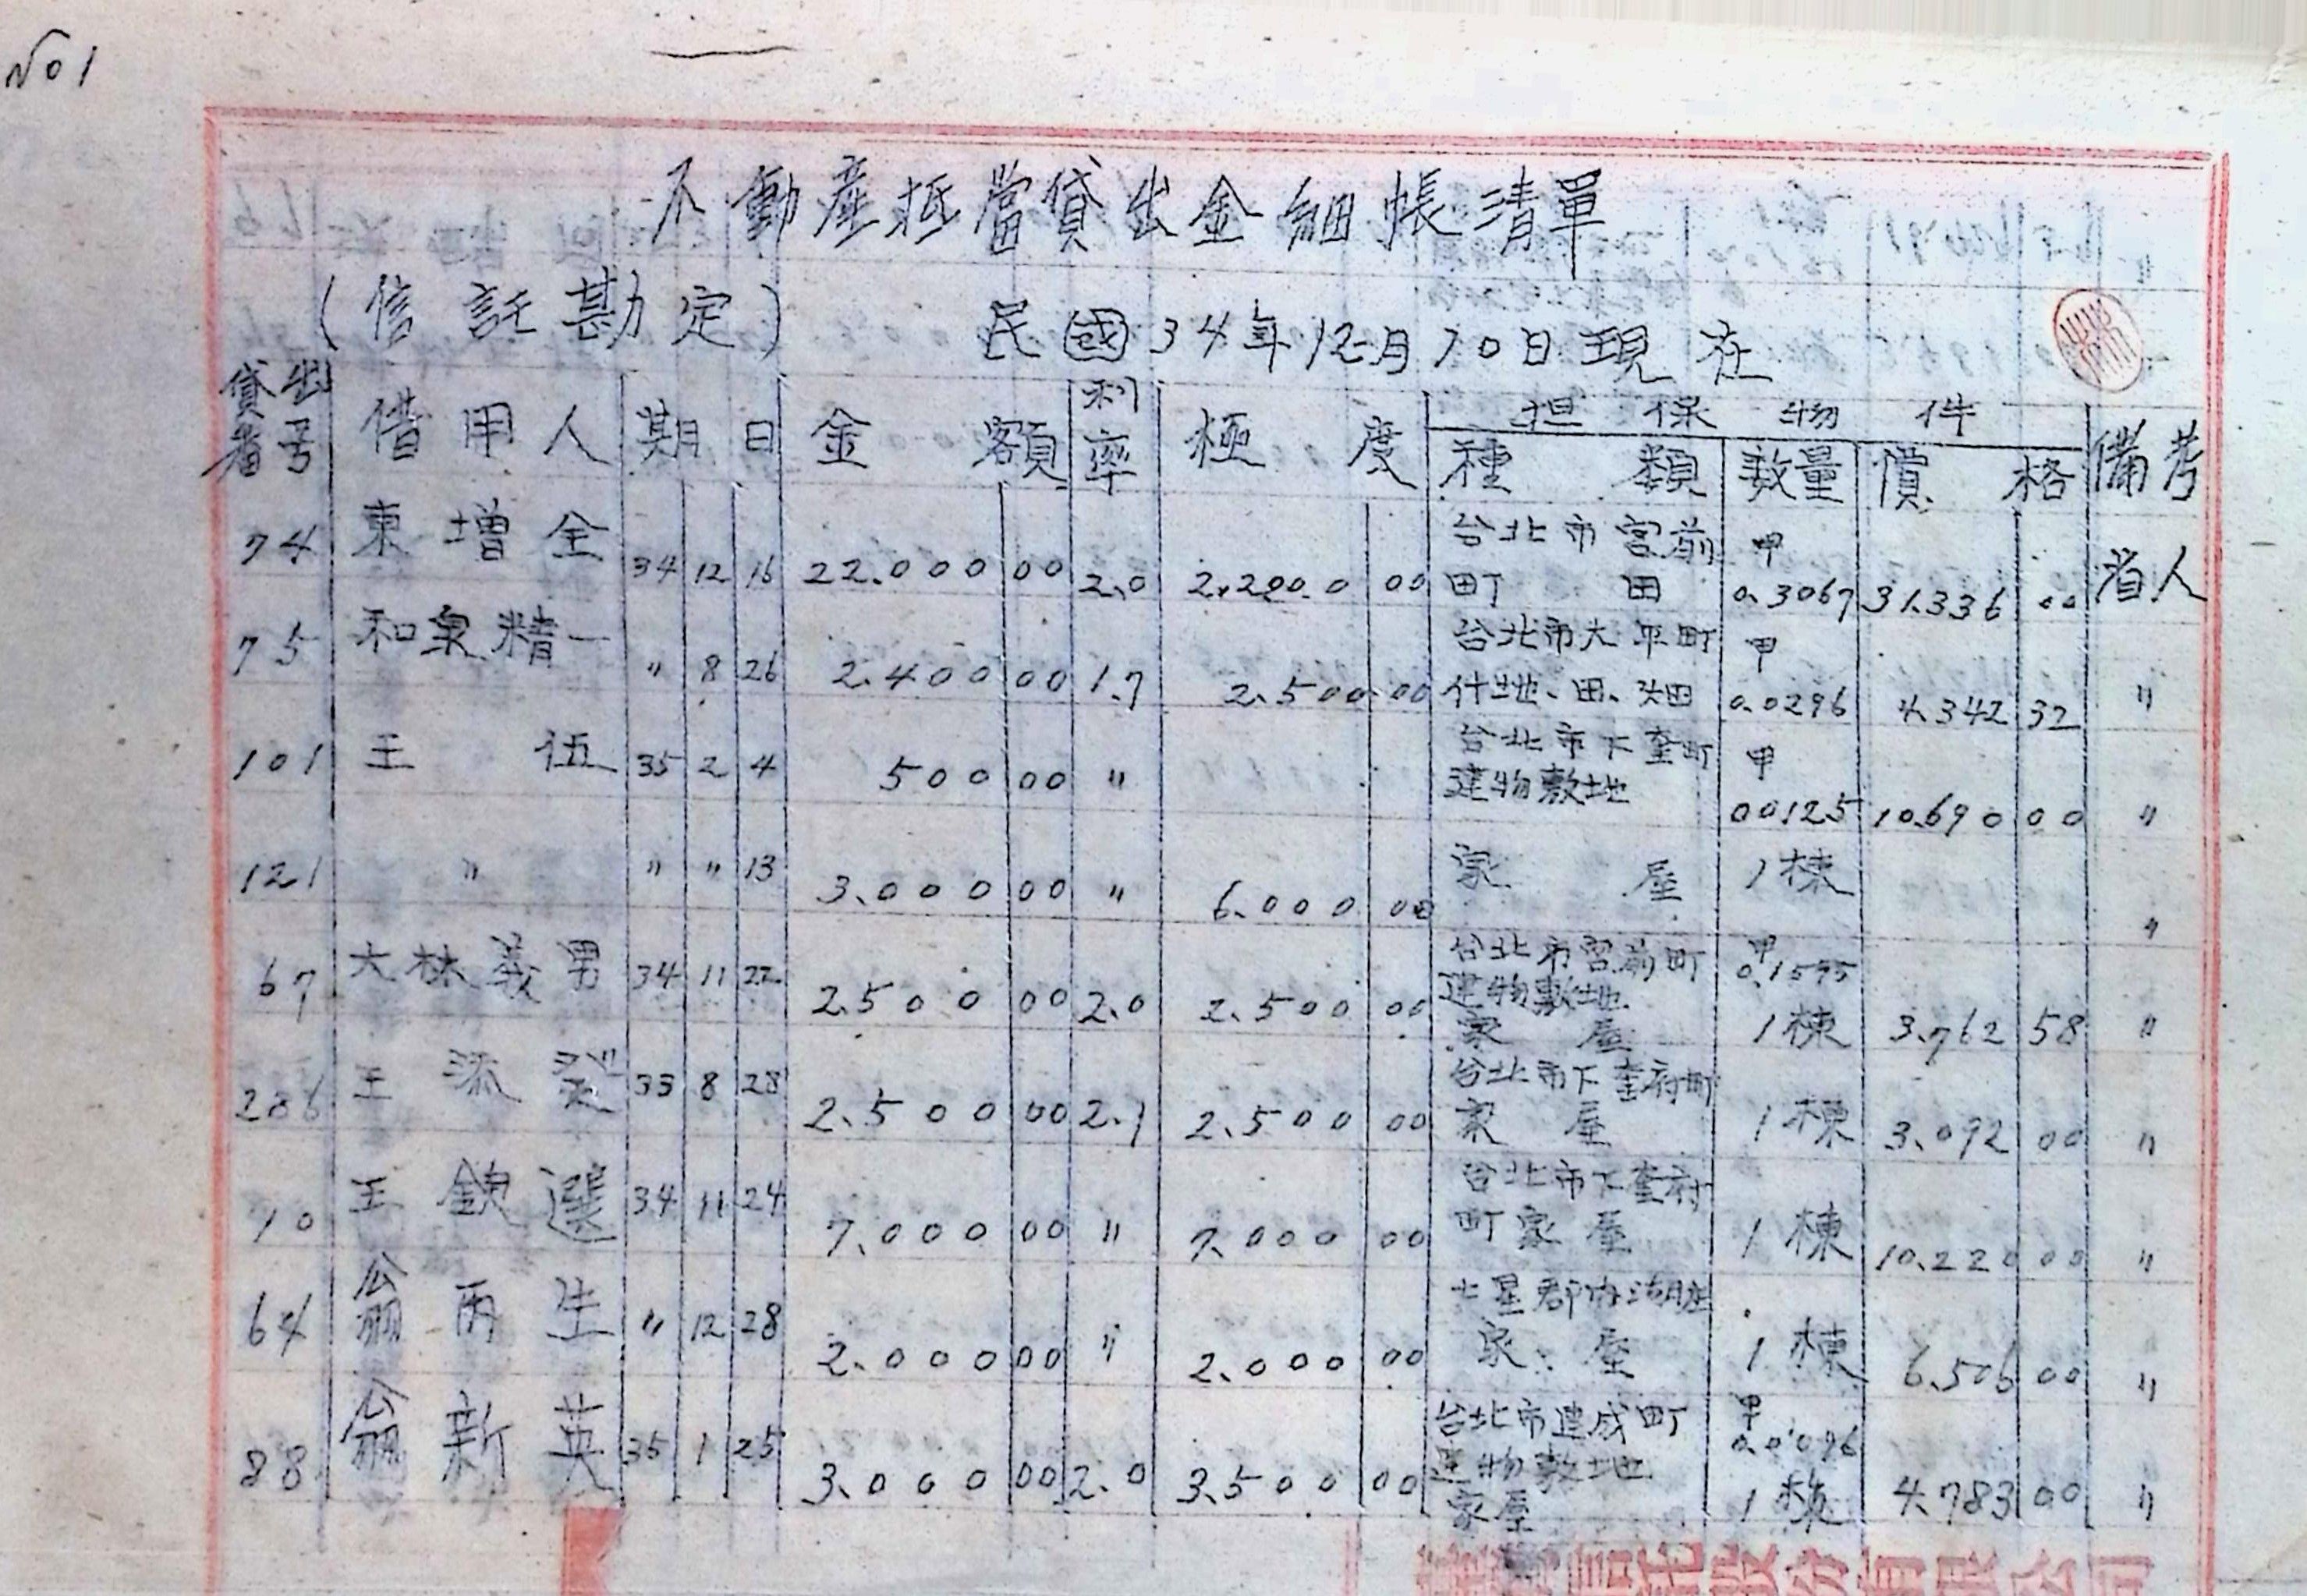 No 1
不動産抵當貸出金細帳清單
(信託勘定) 民國34年12月10日現在
貸出番号 借用人 期日 金額 利率 極度 担保物件 備考
種類 数量 價格
74 東增全 34 12 16 22.000 00 2.0 2.200.0 00 台北市宮前町 田 甲 0.3067 31.336 00 省人
75 和泉精一 〃 8 26 2.400 00 1.7 2.500 00 台北市大平町 什地、田、畑 甲 0.0296 4.342 32 〃
101 王伍 35 2 4 500 00 〃 台北市下奎町 建物敷地 甲 0.0125 10.690 00 〃
121 〃 〃 〃 13 3.000 00 〃 6.000 00 家屋 1棟 〃
67 大林義男 34 11 22 2.500 00 2.0 2.500 00 台北市宮前町 建物敷地 家屋 甲 0.1595 1棟 3.762 58 〃
286 王添 33 8 28 2.500 00 2.1 2.500 00 台北市下奎府町 家屋 1棟 3.092 00 〃
10 王欽選 34 11 24 7.000 00 〃 7.000 00 台北市下奎府町 家屋 1棟 10.220 00 〃
64 翁丙生 〃 12 28 2.000 00 〃 2.000 00 七星郡內湖庄 家屋 1棟 6.506 00 〃
88 翁新英 35 1 25 3.000 00 2.0 3.500 00 台北市建成町 建物敷地 家屋 甲 0.0096 1棟 4.783 00 〃
信託股份有限公司